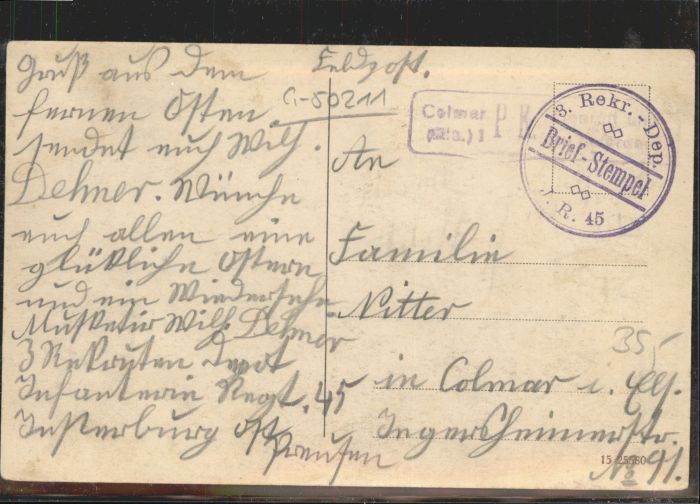 Gruß aus dem
fernen Osten
sendet euch Wilh.
Dehner. Wünche
euch allen eine
glükliche Ostern
und ein Wiedersehn
Musketir Wilh. Dehner
3 Rekruten Depot
Infanterie Regt. 45
Insterburg Ost
Preusen
Feldpost.
G-50211
Colmar
(Els.) 1
P. K.
3. Rekr.-Dep.
Brief-Stempel
J. R. 45
An
Familie
Nitter
in Colmar i. Els.
Ingersheimerstr.
No 91.
35,-
15 25580